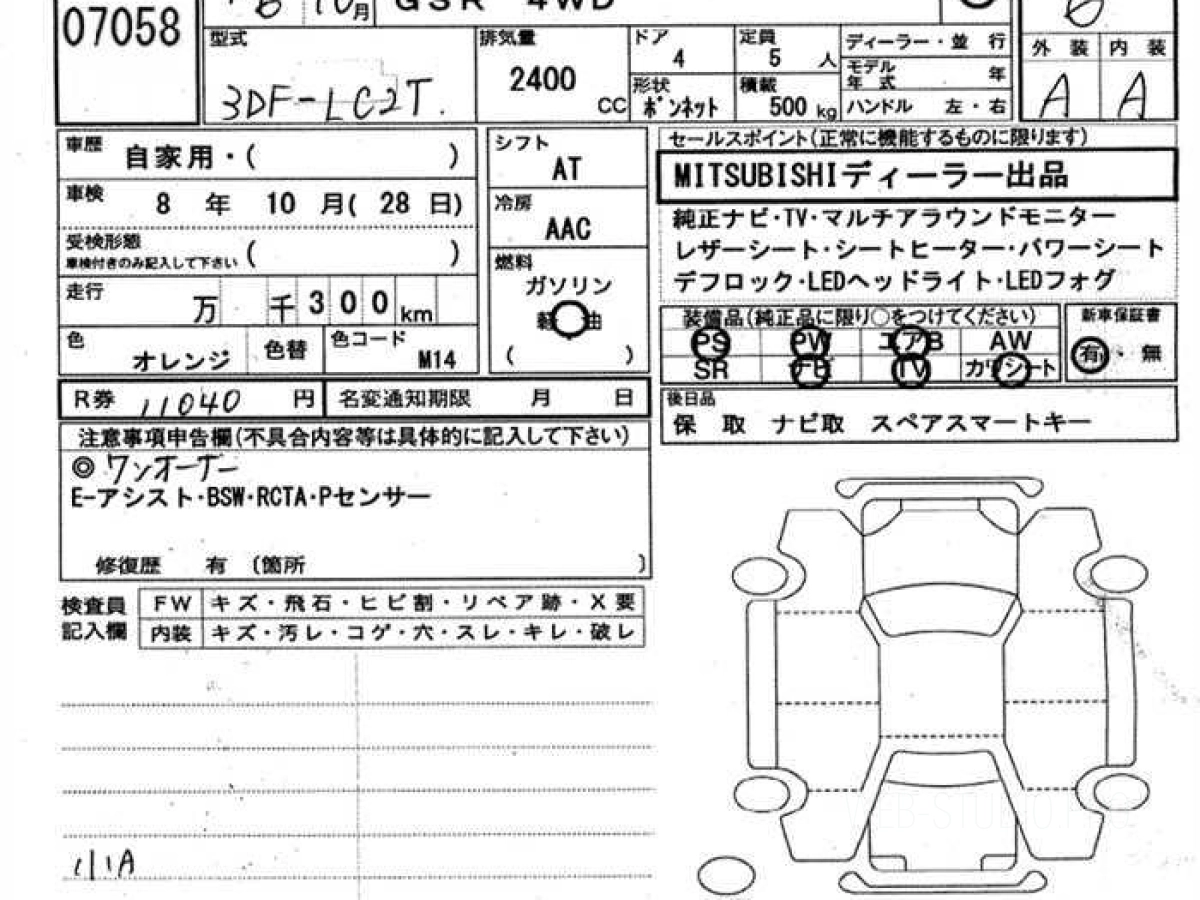 07058
6 10月 GSR 4WD
型式 3DF-LC2T.
排気量 2400 CC
ドア 4
定員 5 人
形状 ボンネット
積載 500 kg
ディーラー・並 行
モデル年 式 年
ハンドル 左・右
外 装 内 装
A A
車歴 自家用・( )
車検 8 年 10 月( 28 日)
受検形態 ( )
車検付きのみ記入して下さい
走行 万 千 300 km
色 オレンジ 色替 色コード M14
シフト AT
冷房 AAC
燃料 ガソリン
軽 油
( )
セールスポイント(正常に機能するものに限ります)
MITSUBISHIディーラー出品
純正ナビ・TV・マルチアラウンドモニター
レザーシート・シートヒーター・パワーシート
デフロック・LEDヘッドライト・LEDフォグ
装備品(純正品に限り〇をつけてください)
PS PW エアB AW
SR ナビ TV カワシート
新車保証書
有・無
R券 11040 円 名変通知期限 月 日
後日品
保 取 ナビ取 スペアスマートキー
注意事項申告欄(不具合内容等は具体的に記入して下さい)
◎ワンオーナー
E-アシスト・BSW・RCTA・Pセンサー
修復歴 有 (箇所 )
検査員記入欄
FW キズ・飛石・ヒビ割・リペア跡・X要
内装 キズ・汚レ・コゲ・穴・スレ・キレ・破レ
WEB-STUDIO